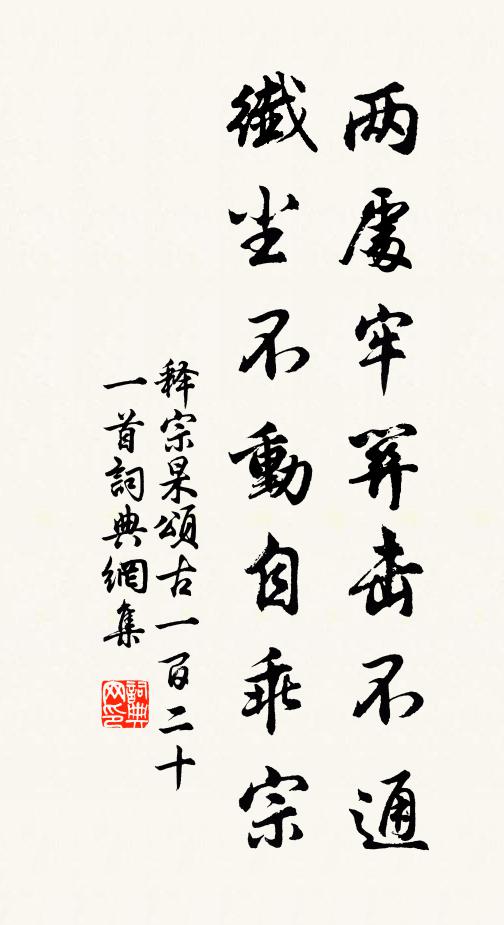 两處牢關击不通
纖尘不動自乖宗
释宗杲頌古一百二十
一首詞典網集
詞典
网印